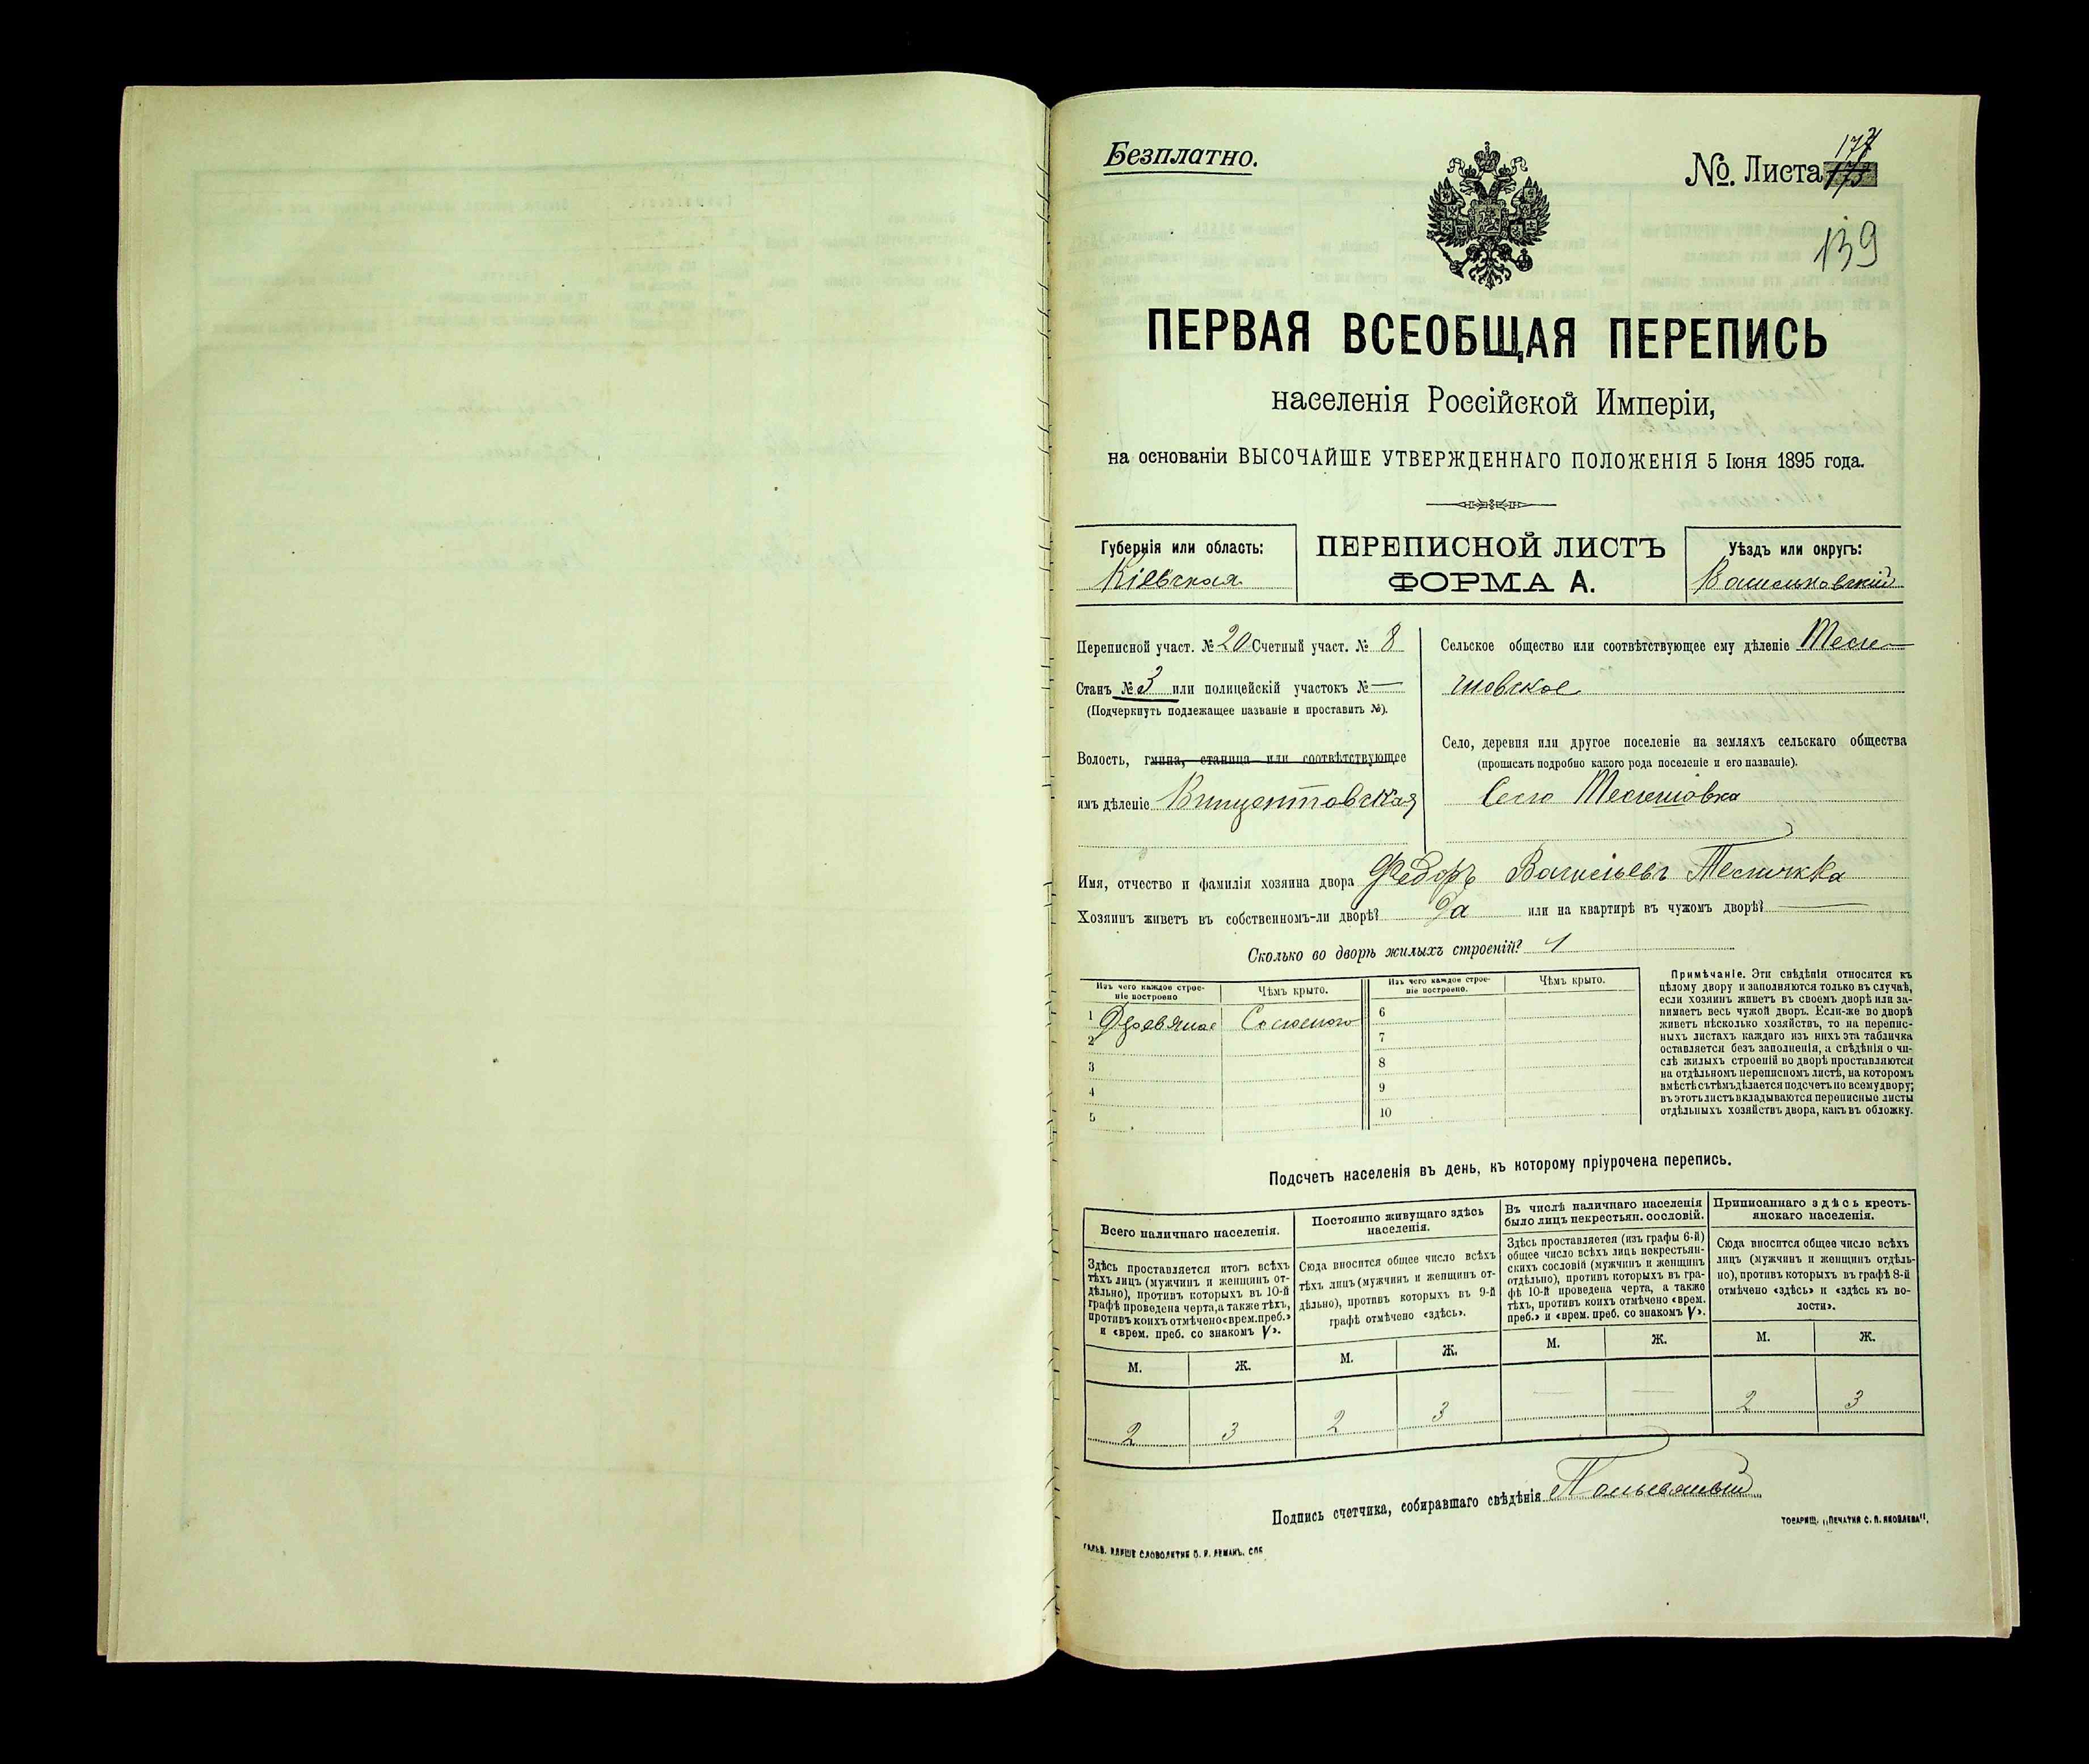 Безплатно.
№. Листа 174
139
ПЕРВАЯ ВСЕОБЩАЯ ПЕРЕПИСЬ
населенія Россійской Имперіи,
на основаніи ВЫСОЧАЙШЕ УТВЕРЖДЕННАГО ПОЛОЖЕНІЯ 5 Іюня 1895 года.
Губернія или область:
Кіевская
ПЕРЕПИСНОЙ ЛИСТЪ
ФОРМА А.
Уѣздъ или округъ:
Васильковскій
Переписной участ. № 20 Счетный участ. № 8
Станъ № 3 или полицейскій участокъ № —
(Подчеркнуть подлежащее названіе и проставить №).
Волость, гмина, станица или соотвѣтствующее
имъ дѣленіе Винцентовская
Сельское общество или соотвѣтствующее ему дѣленіе
Село, деревня или другое поселеніе на земляхъ сельскаго общества
(прописать подробно какого рода поселеніе и его названіе).
Село
Имя, отчество и фамилія хозяина двора Федоръ Васильевъ
Хозяинъ живетъ въ собственномъ-ли дворѣ? Да или на квартирѣ въ чужомъ дворѣ? —
Сколько во дворѣ жилыхъ строеній? 1
Изъ чего каждое строе-
ніе построено
Чѣмъ крыто.
1 Деревяное Соломою
2
3
4
5
Изъ чего каждое строе-
ніе построено.
Чѣмъ крыто.
6
7
8
9
10
Примѣчаніе. Эти свѣдѣнія относятся къ
цѣлому двору и заполняются только въ случаѣ,
если хозяинъ живетъ въ своемъ дворѣ или за-
нимаетъ весь чужой дворъ. Если-же во дворѣ
живетъ нѣсколько хозяйствъ, то на перепис-
ныхъ листахъ каждаго изъ нихъ эта табличка
оставляется безъ заполненія, а свѣдѣнія о чи-
слѣ жилыхъ строеній во дворѣ проставляются
на отдѣльномъ переписномъ листѣ, на которомъ
вмѣстѣ съ тѣмъ дѣлается подсчетъ по всему двору;
въ этотъ листъ вкладываются переписные листы
отдѣльныхъ хозяйствъ двора, какъ въ обложку.
Подсчетъ населенія въ день, къ которому пріурочена перепись.
Всего наличнаго населенія.
Здѣсь проставляется итогъ всѣхъ
тѣхъ лицъ (мужчинъ и женщинъ от-
дѣльно), противъ которыхъ въ 10-й
графѣ проведена черта, а также тѣхъ,
противъ коихъ отмѣчено «врем. преб.»
и «врем. преб. со знакомъ V».
М. Ж.
2 3
Постоянно живущаго здѣсь
населенія.
Сюда вносится общее число всѣхъ
тѣхъ лицъ (мужчинъ и женщинъ от-
дѣльно), противъ которыхъ въ 9-й
графѣ отмѣчено «здѣсь».
М. Ж.
2 3
Въ числѣ наличнаго населенія
было лицъ некрестьян. сословій.
Здѣсь проставляется (изъ графы 6-й)
общее число всѣхъ лицъ некрестьян-
скихъ сословій (мужчинъ и женщинъ
отдѣльно), противъ которыхъ въ гра-
фѣ 10-й проведена черта, а также
тѣхъ, противъ коихъ отмѣчено «врем.
преб.» и «врем. преб. со знакомъ V».
М. Ж.
— —
Приписаннаго здѣсь кресть-
янскаго населенія.
Сюда вносится общее число всѣхъ
лицъ (мужчинъ и женщинъ отдѣль-
но), противъ которыхъ въ графѣ 8-й
отмѣчено «здѣсь» и «здѣсь къ во-
лости».
М. Ж.
2 3
Подпись счетчика, собиравшаго свѣдѣнія
ТОВАРИЩ. „ПЕЧАТНЯ С. П. ЯКОВЛЕВА“.
СЛОВОЛИТНЯ О. И. ЛЕМАНЪ, СПБ